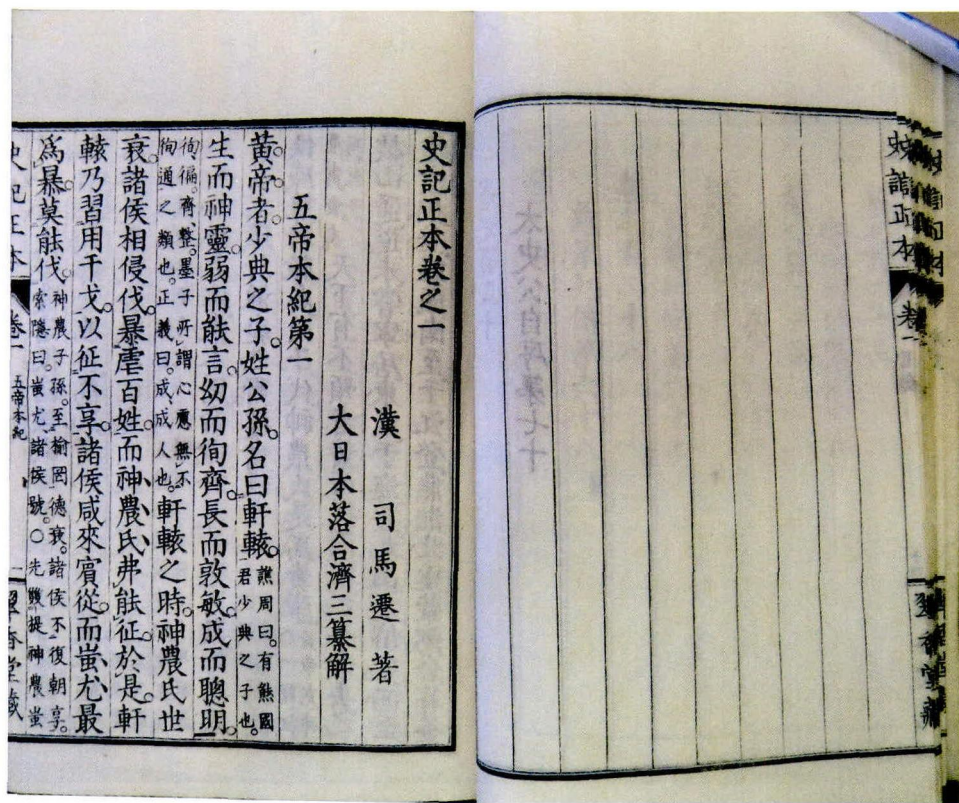 史記正本 卷一
史記正本卷之一
漢 司馬遷 著
大日本落合濟三纂解
五帝本紀第一
黃帝者。少典之子。姓公孫。名曰軒轅。譙周曰。有熊國君少典之子也。
生而神靈。弱而能言。幼而徇齊。長而敦敏。成而聰明。
徇偏。齊整。墨子所謂心應無不徇通之類也。正義曰。成成人也。軒轅之時。神農氏世
衰。諸侯相侵伐。暴虐百姓。而神農氏弗能征。於是軒
轅乃習用干戈。以征不享。諸侯咸來賓從。而蚩尤最
爲暴。莫能伐。神農子孫。至榆罔德衰。諸侯不復朝享。索隱曰。蚩尤、諸侯號。○先雙提神農蚩
史記正本 卷一 五帝本紀 一 香堂藏